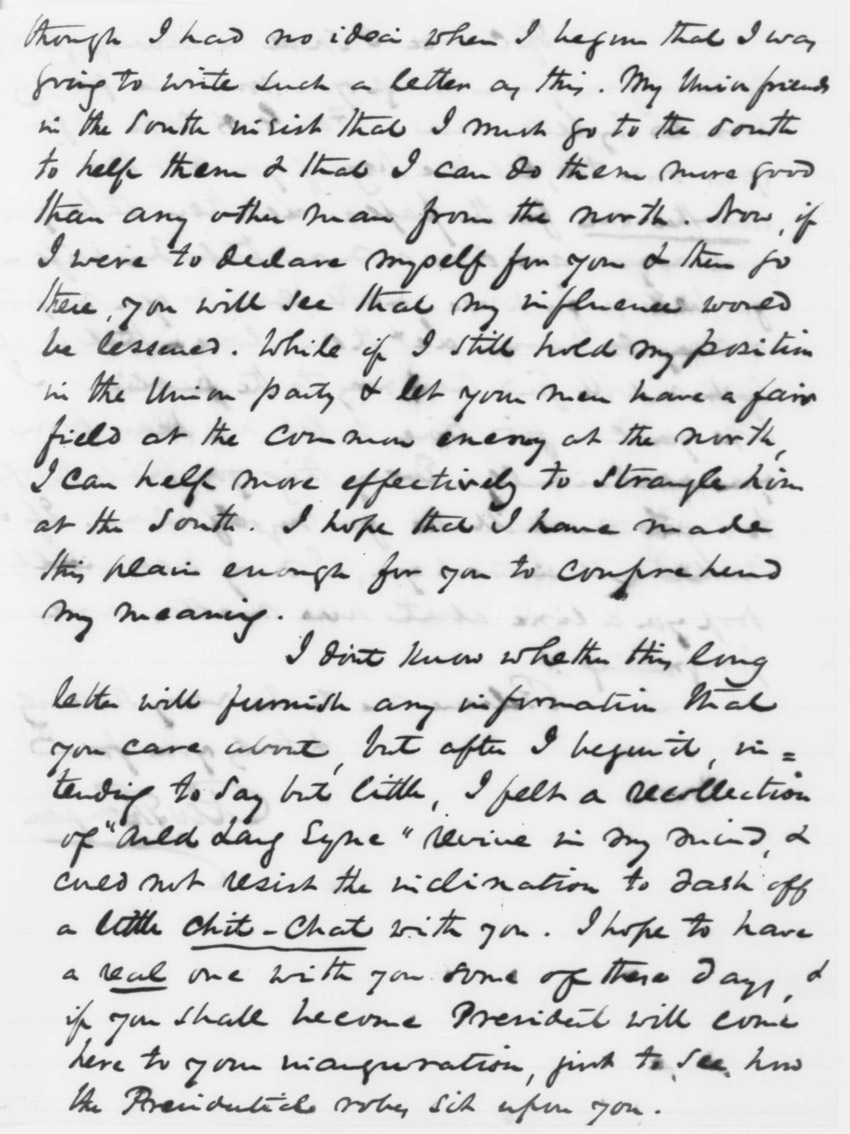 though I had no idea when I begun that I was
going to write such a letter as this. My Union friends
in the South insist that I must go to the South
to help them & that I can do them more good
than any other man from the north. Now, if
I were to declare myself for you & then go
there, you will see that my influence would
be lessened. While if I still hold my position
in the Union party & let your men have a fair
field at the common enemy at the north,
I can help more effectively to strangle him
at the South. I hope that I have made
this plain enough for you to comprehend
my meaning.
I dont know whether this long
letter will furnish any information that
you care about, but after I begun it, in=
tending to say but little, I felt a recollection
of "Auld Lang Syne" revive in my mind, &
could not resist the inclination to dash off
a little chit-chat with you. I hope to have
a real one with you some of these days, &
if you shall become President will come
here to your inauguration, just to see how
the Presidential robes sit upon you.